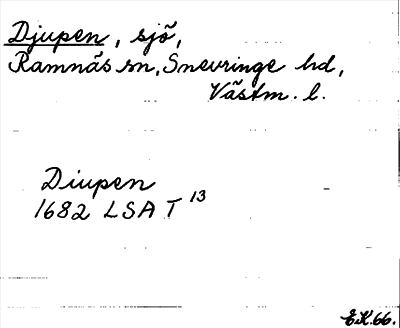 Djupen, sjö,
Ramnäs sn, Snevringe hd,
Västm. l.
Diupen
1682 LSA T 13
E.K.66.